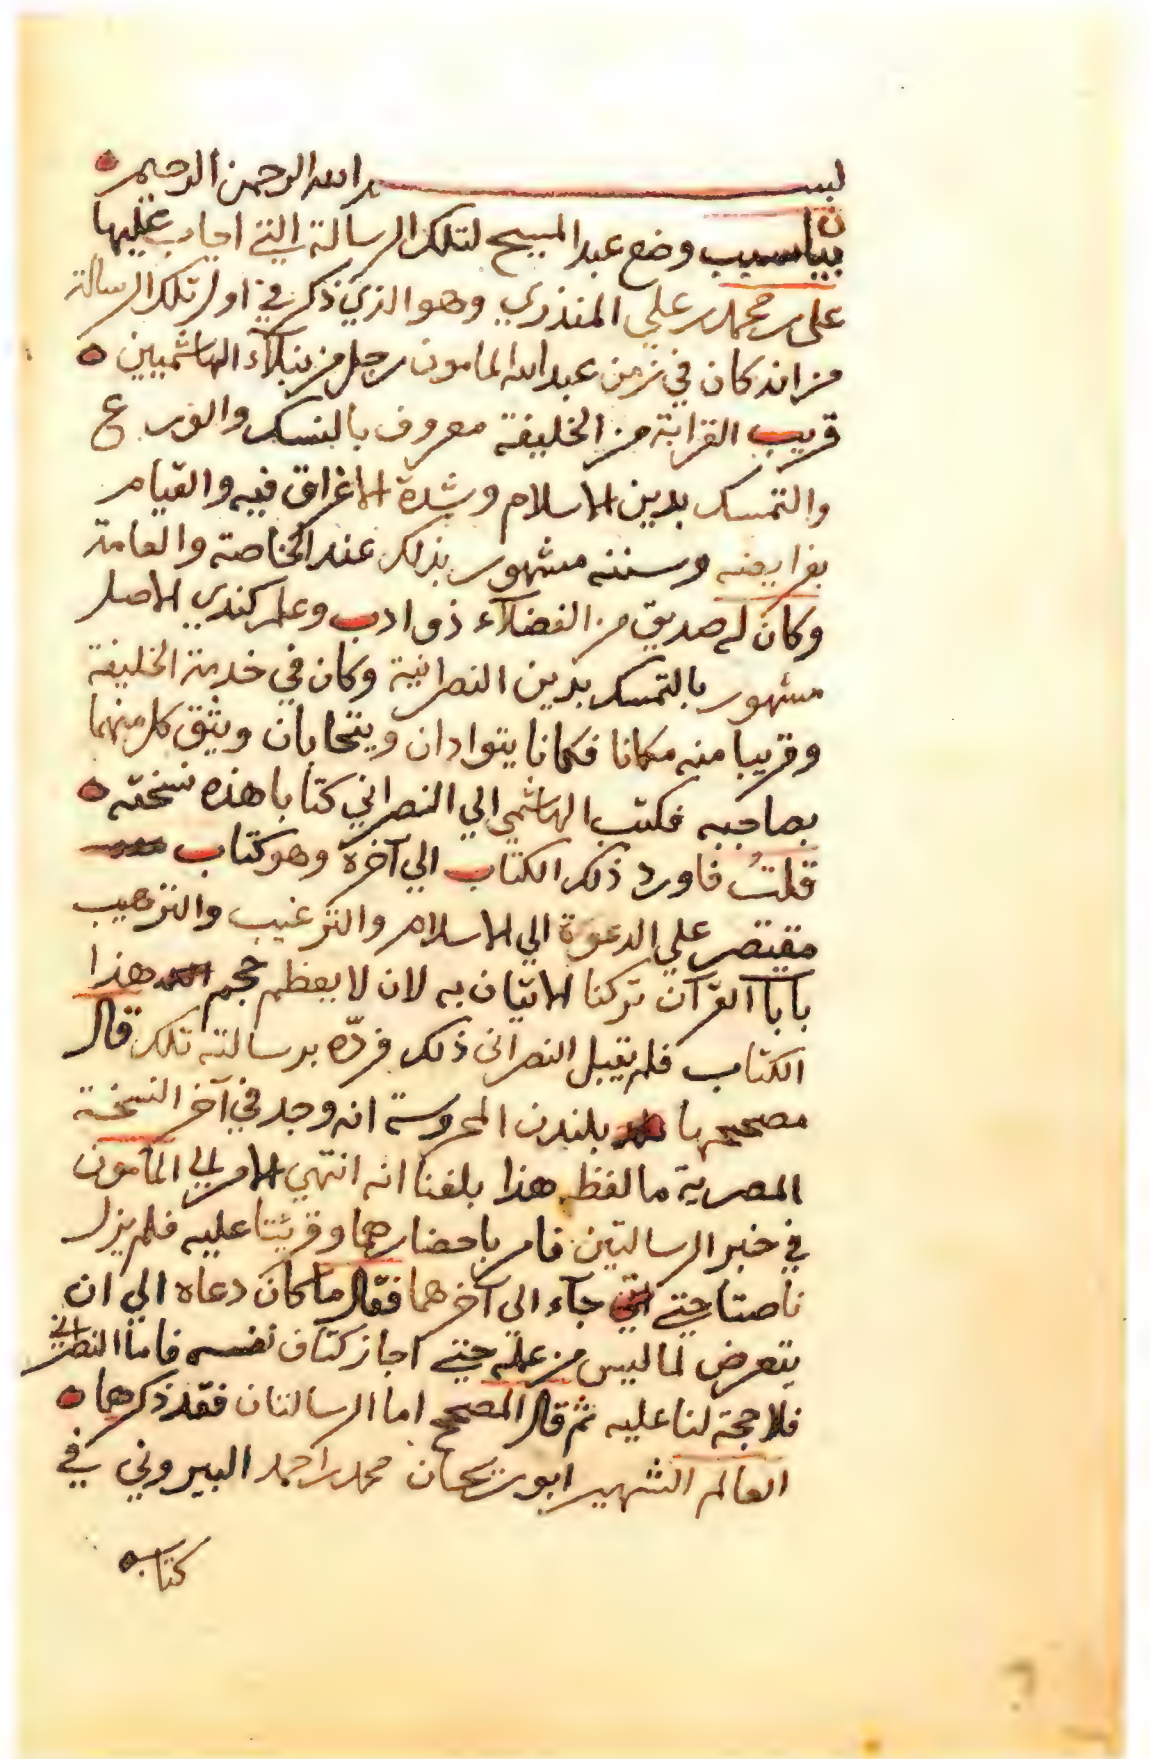 بسم الله الرحمن الرحيم
بيان سبب وضع عبد المسيح لتلك الرسالة التي اجاب عليها
علي بن محمد بن علي المنذري وهو الذي ذكر في اول تلك الرسالة
من انه كان في زمن عبد الله المامون رجل من نبلآء الهاشميين
قريب القرابة من الخليفة معروف بالنسك والورع
والتمسك بدين الاسلام وشدة الاغراق فيه والقيام
بفرايضه وسننه مشهور بذلك عند الخاصة والعامة
وكان له صديق من الفضلآء ذو ادب وعلم كندي الاصل
مشهور بالتمسك بدين النصرانية وكان في خدمة الخليفة
وقريبا منه مكانا فكانا يتوادان ويتحابان ويثق كل منهما
بصاحبه فكتب الهاشمي الي النصراني كتابا هذه نسخته
قلتُ فاورد ذلك الكتاب الي آخره وهو كتاب
مقتصر علي الدعوة الي الاسلام والترغيب والترهيب
بآيات القرآن تركنا الاتيان به لان لا يعظم حجم هذا
الكتاب فلم يقبل النصراني ذلك فردّه برسالته تلك قال
مصححها بلندن المحروسة انه وجد في آخر النسخة
المصرية ما لفظه هذا بلغنا انه انتهي الامر الي المأمون
في خبر الرسالتين فامر باحضارهما وقريتا عليه فلم يزل
ناصتا حتي جآء الى آخرهما فقال ما كان دعاه الي ان
يتعرض لما ليس من عمله حتي اجاز كتاف نفسه فاما النصراني
فلا حجة لنا عليه ثم قال المصحح اما الرسالتان فقد ذكرهما
العالم الشهير ابو ريحان محمد بن احمد البيروني في
كتابه